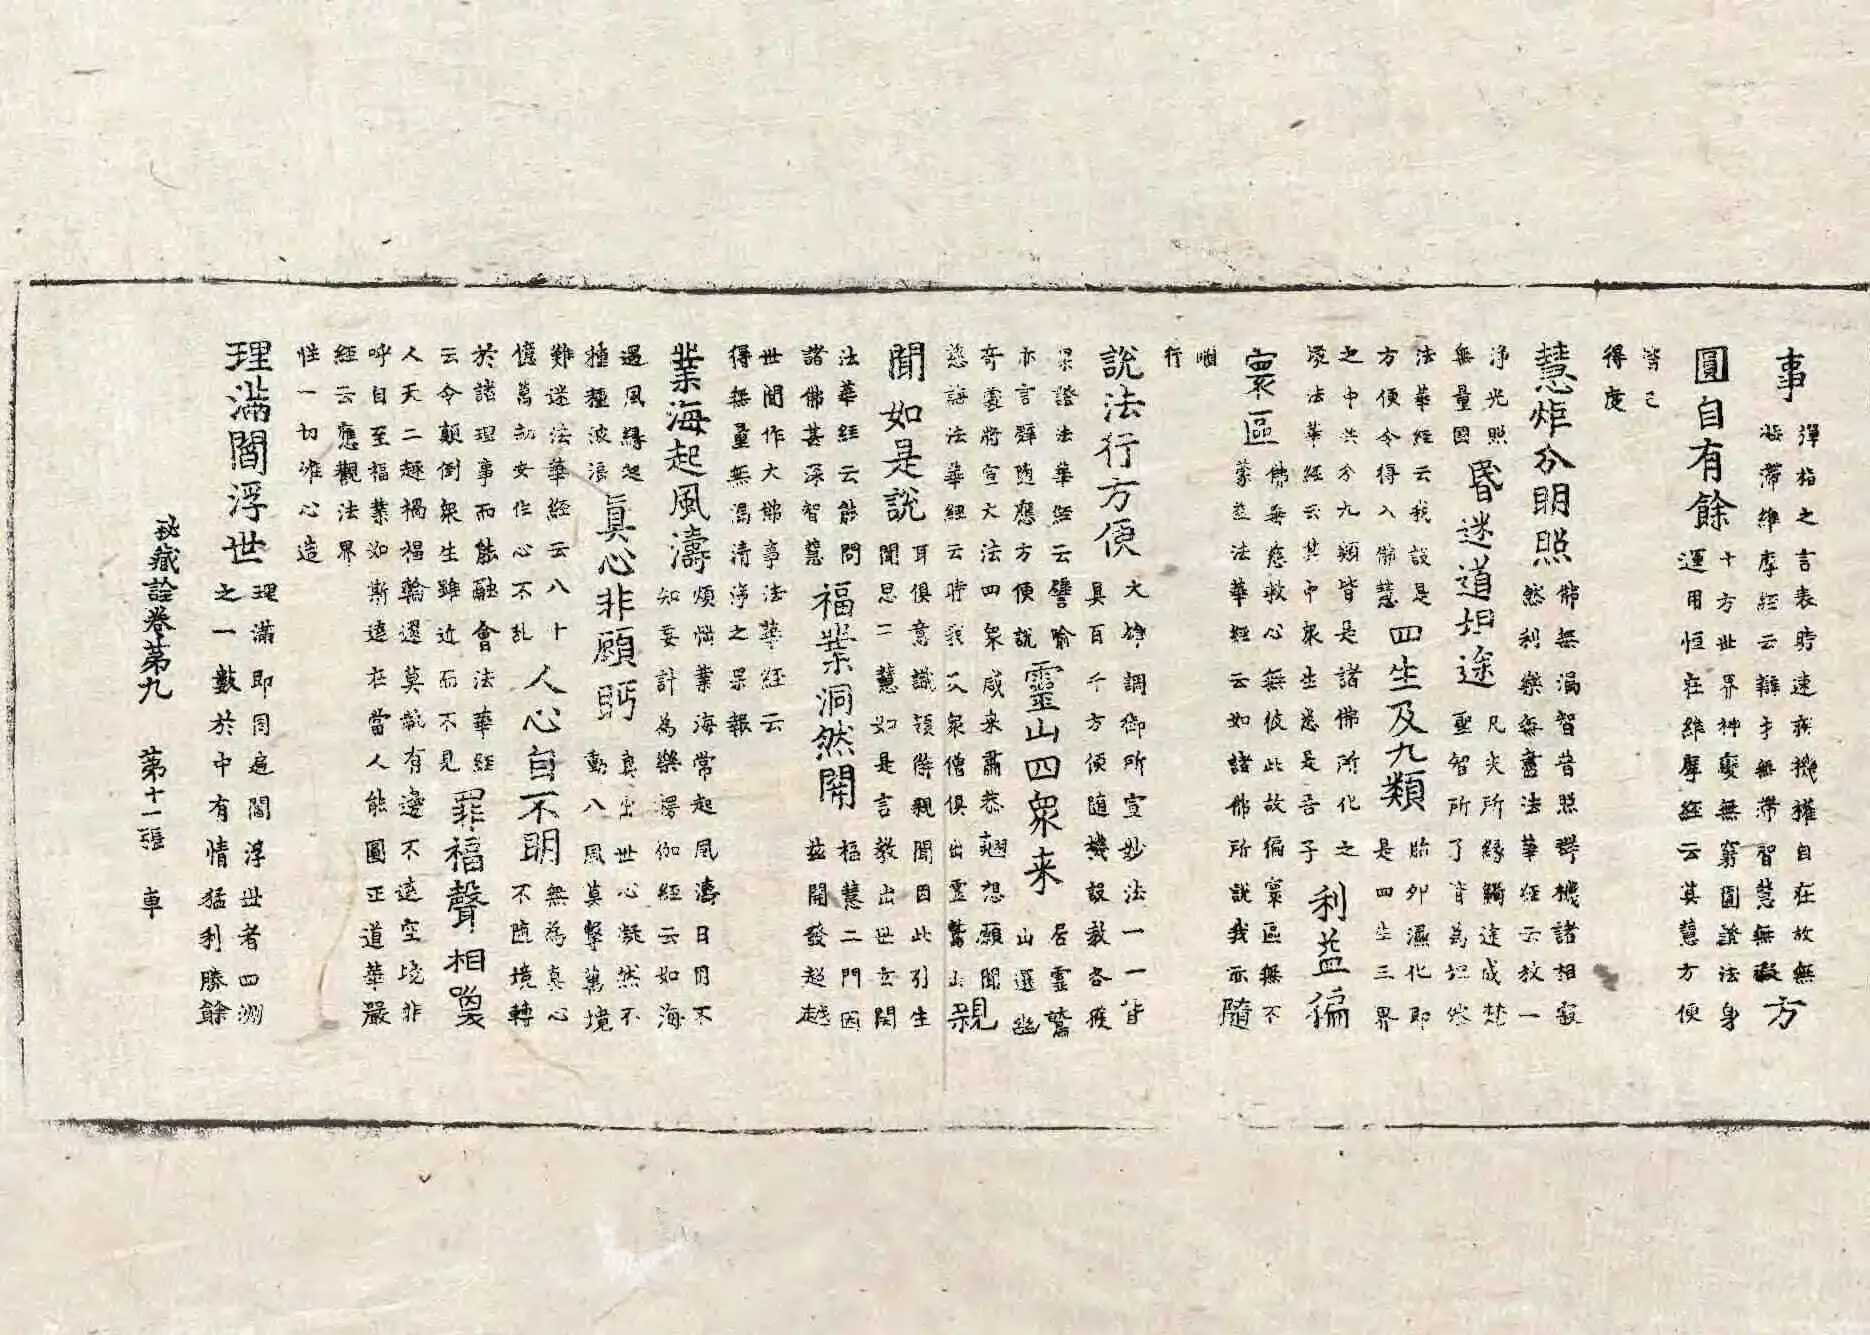 事彈指之言表時速疾機權自在故無凝滯維摩經云辯才無滯智慧無礙方
圓自有餘十方世界神變無窮圓證法身運用恒在維摩經云其慧方便
皆已得度
慧炬分明照佛無漏智普照群機諸相寂然利樂無盡法華經云放一
淨光照無量國昏迷道坦途凡夫所緣觸途成楚聖智所了育為坦然
法華經云我設是方便令得入佛慧四生及九類胎卵濕化即是四生三界
之中共分九類皆是諸佛所化之眾法華經云其中眾生悉是吾子利益徧
寰區佛無慈救心無彼此故徧寰區無不蒙益法華經云如諸佛所說我亦隨
行
說法行方便大雄調御所宣妙法一一皆具百千方便随機設教各獲
果證法華經云譬喻亦言辭随應方便說靈山四眾来居靈鷲山選幽
奇處將宣大法四眾咸来肅恭翹想願聞慈誨法華經云時我及衆僧俱出靈鷲山親
聞如是說耳俱意識領佛親聞因此引生聞思二慧如是言教出世玄関
法華經云能問諸佛甚深智慧福業洞然開福慧二門因兹開發超越
世間作大佛事法華經云得無量無漏清淨之果報
業海起風濤煩惱業海常起風濤日用不知妄計為樂楞伽經云如海
遇風緣起種種波浪真心非顧眄真出世心凝然不動八風莫擊萬境
難迷法華經云八十億萬劫安住心不乱人心自不明無為真心不随境轉
於諸理事而能融會法華經云令顛倒眾生雖近而不見罪福聲相響
人天二趣禍福輪還莫執有邊不遠空境非呼自至福業如斯遠在當人能圓正道華嚴
經云應觀法界性一切唯心造
理滿閻浮世理滿即同遍閻浮世者四洲之一數於中有情猛利勝餘
秘藏詮卷第九 第十一張 車